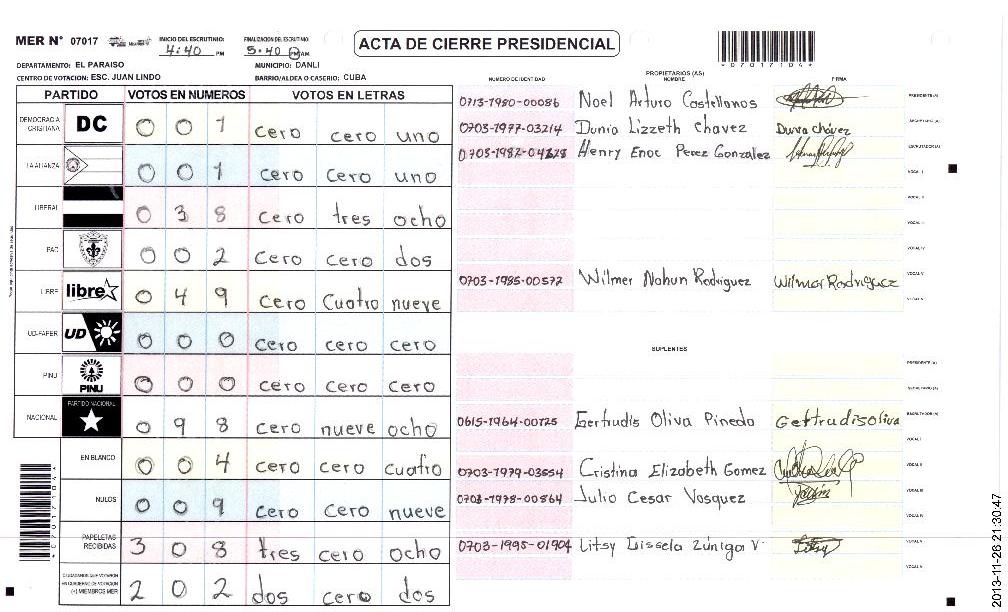 MER N° 07017
INICIO DEL ESCRUTINIO: 4:40 PM
FINALIZACION DEL ESCRUTINIO: 5:40 PM AM
ACTA DE CIERRE PRESIDENCIAL
*07017104*
DEPARTAMENTO: EL PARAISO
MUNICIPIO: DANLI
CENTRO DE VOTACION: ESC. JUAN LINDO
BARRIO/ALDEA O CASERIO: CUBA
PARTIDO VOTOS EN NUMEROS VOTOS EN LETRAS
DEMOCRACIA CRISTIANA DC 0 0 1 cero cero uno
LA ALIANZA 0 0 1 cero cero uno
LIBERAL 0 3 8 cero tres ocho
PAC 0 0 2 cero cero dos
LIBRE libre 0 4 9 cero cuatro nueve
UD-FAPER UD 0 0 0 cero cero cero
PINU PINU 0 0 0 cero cero cero
NACIONAL PARTIDO NACIONAL 0 9 8 cero nueve ocho
EN BLANCO 0 0 4 cero cero cuatro
NULOS 0 0 9 cero cero nueve
PAPELETAS RECIBIDAS 3 0 8 tres cero ocho
CIUDADANOS QUE VOTARON EN CUADERNO DE VOTACION (+) MIEMBROS MER 2 0 2 dos cero dos
*07017104*
PROPIETARIOS (AS)
NUMERO DE IDENTIDAD NOMBRE FIRMA
0713-1980-00086 Noel Arturo Castellanos PRESIDENTE (A)
0703-1977-03214 Dunia Lizzeth Chavez Dunia Chávez SECRETARIO (A)
Henry Enoc Perez Gonzalez ESCRUTADOR (A)
VOCAL I
VOCAL II
VOCAL III
VOCAL IV
0703-1985-00572 Wilmer Nahun Rodriguez Wilmer Rodriguez VOCAL V
SUPLENTES
PRESIDENTE (A)
SECRETARIO (A)
0615-1964-00725 Gertrudis Oliva Pineda Gertrudis oliva ESCRUTADOR (A)
VOCAL I
0703-1979-03554 Cristina Elizabeth Gomez VOCAL II
0703-1978-00564 Julio Cesar Vasquez VOCAL III
VOCAL IV
0703-1995-01904 Litsy Gissela Zúniga V. Litsy VOCAL V
2013-11-26 21:30:47